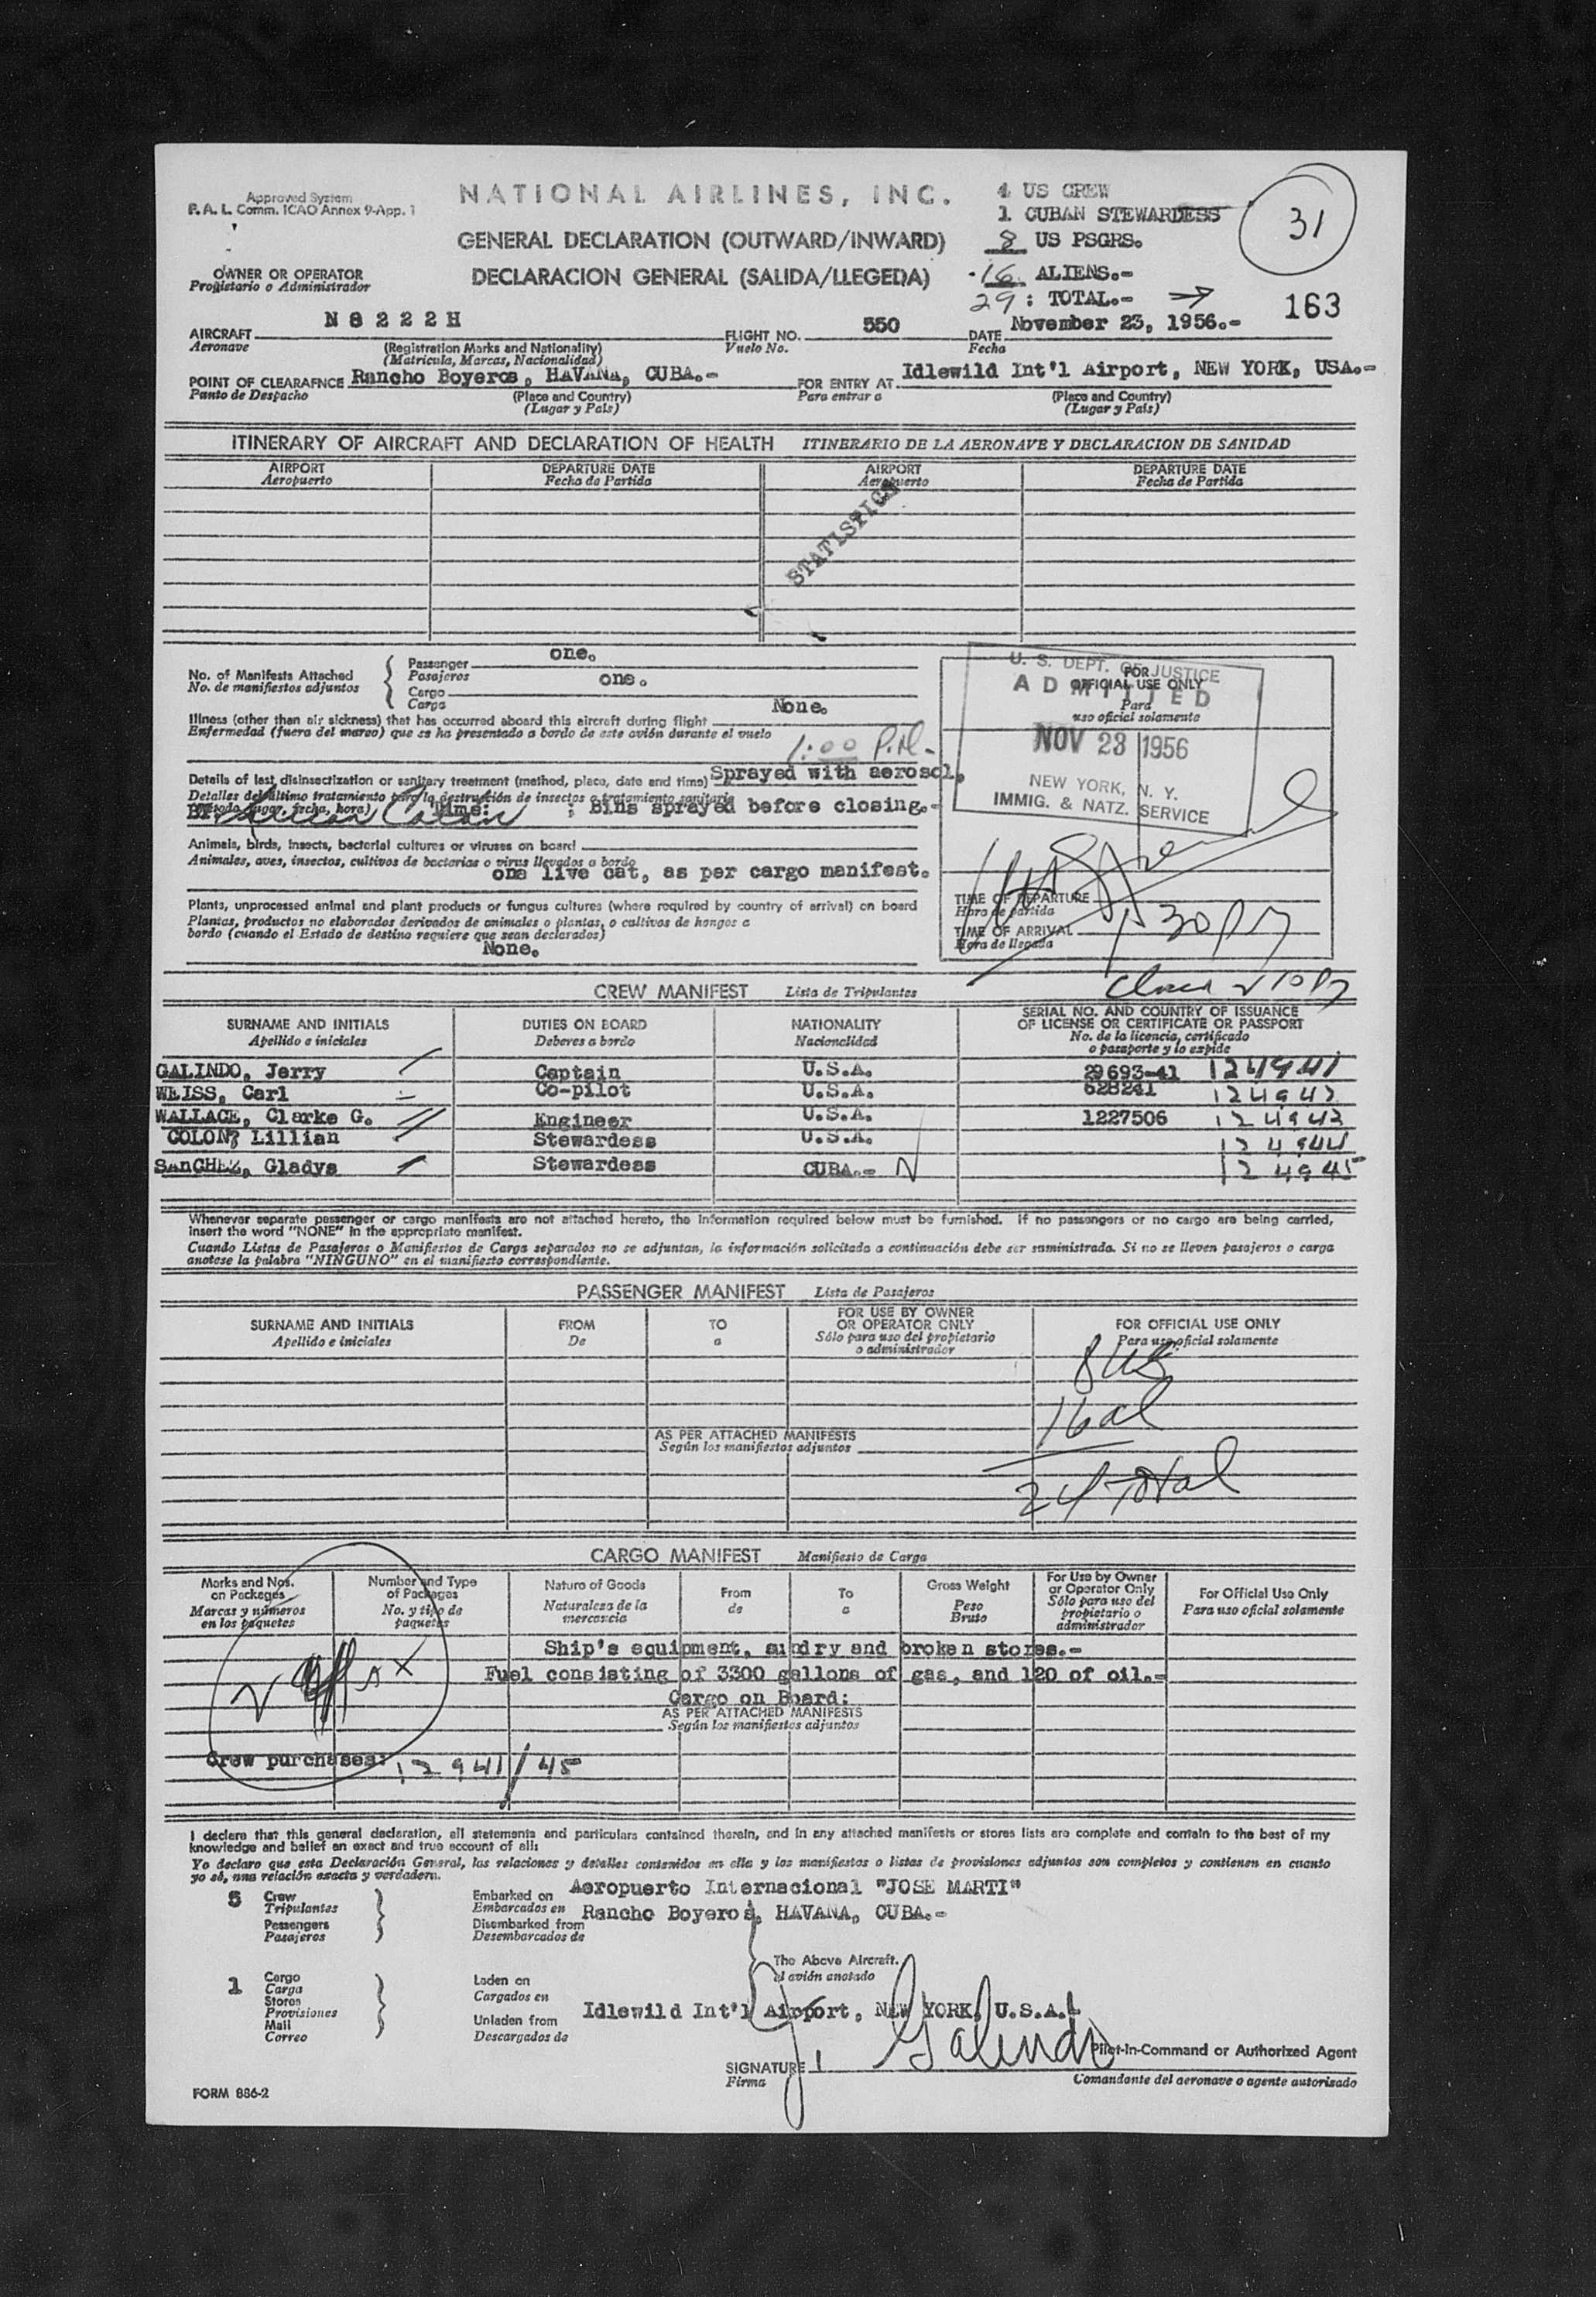 Approved System
F. A. L. Comm. ICAO Annex 9-App. 1
NATIONAL AIRLINES, INC.
GENERAL DECLARATION (OUTWARD/INWARD)
DECLARACION GENERAL (SALIDA/LLEGEDA)
4 US CREW
1 CUBAN STEWARDESS
8 US PSGRS.
16 ALIENS.-
29 : TOTAL.-
31
163
OWNER OR OPERATOR
Propietario o Administrador
AIRCRAFT N 8 2 2 2 H FLIGHT NO. 550 DATE November 23, 1956.-
Aeronave (Registration Marks and Nationality) Vuelo No. Fecha
(Matrícula, Marcas, Nacionalidad)
POINT OF CLEARAFNCE Rancho Boyeros, HAVANA, CUBA.- FOR ENTRY AT Idlewild Int'l Airport, NEW YORK, USA.-
Punto de Despacho (Place and Country) Para entrar a (Place and Country)
(Lugar y País) (Lugar y País)
ITINERARY OF AIRCRAFT AND DECLARATION OF HEALTH ITINERARIO DE LA AERONAVE Y DECLARACION DE SANIDAD
AIRPORT DEPARTURE DATE AIRPORT DEPARTURE DATE
Aeropuerto Fecha de Partida Aeropuerto Fecha de Partida
STATISTICS
No. of Manifests Attached
No. de manifiestos adjuntos
Passenger one.
Pasajeros
Cargo one.
Carga
Illness (other than air sickness) that has occurred aboard this aircraft during flight None.
Enfermedad (fuera del mareo) que se ha presentado a bordo de este avión durante el vuelo
1:00 P.M-
Details of last disinsectization or sanitary treatment (method, place, date and time) Sprayed with aerosol,
Detalles del último tratamiento para la destrucción de insectos o tratamiento sanitario
(método, lugar, fecha, hora)
BY Lillian Colon Time: ; Bins sprayed before closing.-
Animals, birds, insects, bacterial cultures or viruses on board
Animales, aves, insectos, cultivos de bacterias o virus llevados a bordo
one live cat, as per cargo manifest.
Plants, unprocessed animal and plant products or fungus cultures (where required by country of arrival) on board
Plantas, productos no elaborados derivados de animales o plantas, o cultivos de hongos a
bordo (cuando el Estado de destino requiere que sean declarados)
None.
FOR
OFFICIAL USE ONLY
Para
uso oficial solamente
U. S. DEPT. OF JUSTICE
ADMITTED
NOV 23 1956
NEW YORK, N. Y.
IMMIG. & NATZ. SERVICE
TIME OF DEPARTURE
Hora de partida
TIME OF ARRIVAL 1 30 PM
Hora de llegada
CREW MANIFEST Lista de Tripulantes
SURNAME AND INITIALS DUTIES ON BOARD NATIONALITY SERIAL NO. AND COUNTRY OF ISSUANCE
OF LICENSE OR CERTIFICATE OR PASSPORT
Apellido e iniciales Deberes a bordo Nacionalidad No. de la licencia, certificado
o pasaporte y lo expide
GALINDO, Jerry Captain U.S.A. 29693-41 124941
WEISS, Carl Co-pilot U.S.A. 628241 124942
WALLACE, Clarke G. Engineer U.S.A. 1227506 124943
COLON, Lillian Stewardess U.S.A. 124944
SANCHEZ, Gladys Stewardess CUBA.- 124945
Whenever separate passenger or cargo manifests are not attached hereto, the information required below must be furnished. If no passengers or no cargo are being carried,
insert the word "NONE" in the appropriate manifest.
Cuando Listas de Pasajeros o Manifiestos de Carga separados no se adjuntan, la información solicitada a continuación debe ser suministrada. Si no se lleven pasajeros o carga
anotese la palabra "NINGUNO" en el manifiesto correspondiente.
PASSENGER MANIFEST Lista de Pasajeros
SURNAME AND INITIALS FROM TO FOR USE BY OWNER
OR OPERATOR ONLY FOR OFFICIAL USE ONLY
Apellido e iniciales De a Sólo para uso del propietario
o administrador Para uso oficial solamente
8 US
16 al
24 Total
AS PER ATTACHED MANIFESTS
Según los manifiestos adjuntos
CARGO MANIFEST Manifiesto de Carga
Marks and Nos.
on Packages
Marcas y números
en los paquetes
Number and Type
of Packages
No. y tipo de
paquetes
Nature of Goods
Naturaleza de la
mercancia
From
de
To
a
Gross Weight
Peso
Bruto
For Use by Owner
or Operator Only
Sólo para uso del
propietario o
administrador
For Official Use Only
Para uso oficial solamente
Ship's equipment, sundry and broken stores.-
Fuel consisting of 3300 gallons of gas, and 120 of oil.-
Cargo on Board:
AS PER ATTACHED MANIFESTS
Según los manifiestos adjuntos
Crew purchases: 12941/45
I declare that this general declaration, all statements and particulars contained therein, and in any attached manifests or stores lists are complete and contain to the best of my
knowledge and belief an exact and true account of all:
Yo declaro que esta Declaración General, las relaciones y detalles contenidos en ella y los manifiestos o listas de provisiones adjuntos son completos y contienen en cuanto
yo sé, una relación exacta y verdadera.
5 Crew
Tripulantes
Passengers
Pasajeros
Embarked on Aeropuerto Internacional "JOSE MARTI"
Embarcados en Rancho Boyeros, HAVANA, CUBA.-
Disembarked from
Desembarcados de
The Above Aircraft.
el avión anotado
1 Cargo
Carga
Stores
Provisiones
Mail
Correo
Laden on
Cargados en
Idlewild Int'l Airport, NEW YORK, U.S.A.
Unladen from
Descargados de
SIGNATURE J Galindo Pilot-In-Command or Authorized Agent
Firma Comandante del aeronave o agente autorizado
FORM 886-2